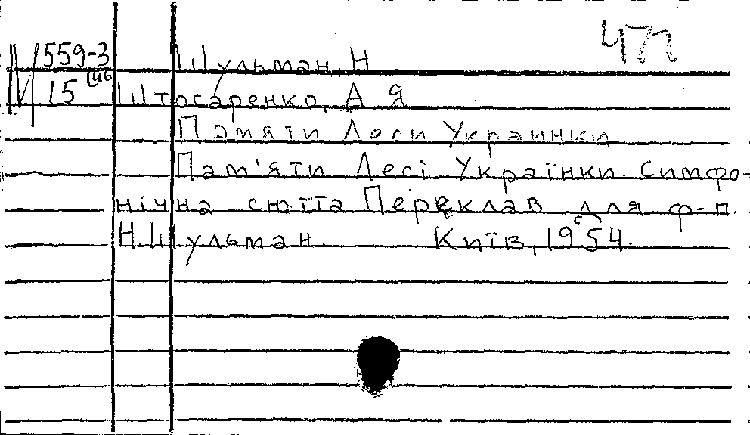 472
N 559-3 Шульман, Н
15 Штогаренко, А Я
Памяти Леси Украинки
Пам'яти Лесі Українки Симфо-
нічна сюїта Переклав для ф-п.
Н.Шульман Київ, 1954.